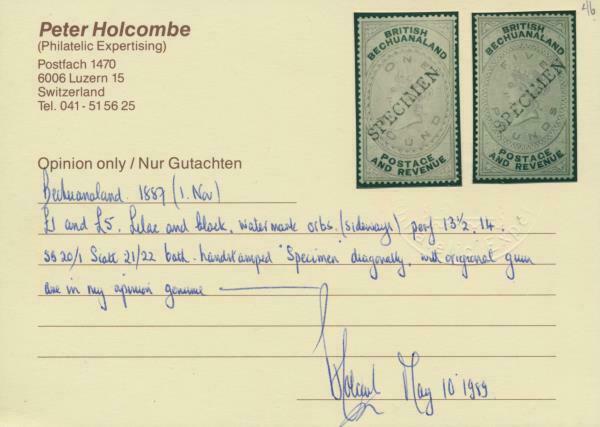 4/6
Peter Holcombe
(Philatelic Expertising)
Postfach 1470
6006 Luzern 15
Switzerland
Tel. 041-51 56 25
BRITISH
BECHUANALAND
ONE
POUND
SPECIMEN
POSTAGE
AND REVENUE
BRITISH
BECHUANALAND
FIVE
POUNDS
SPECIMEN
POSTAGE
AND REVENUE
Opinion only / Nur Gutachten
Bechuanaland. 1887 (1. Nov)
£1 and £5. Lilac and black, watermark orbs. (sideways) perf 13½, 14.
SG 20/1 both. handstamped "Specimen" diagonally, with origional gum
are in my opinion genuine
Holcombe May 10 1989